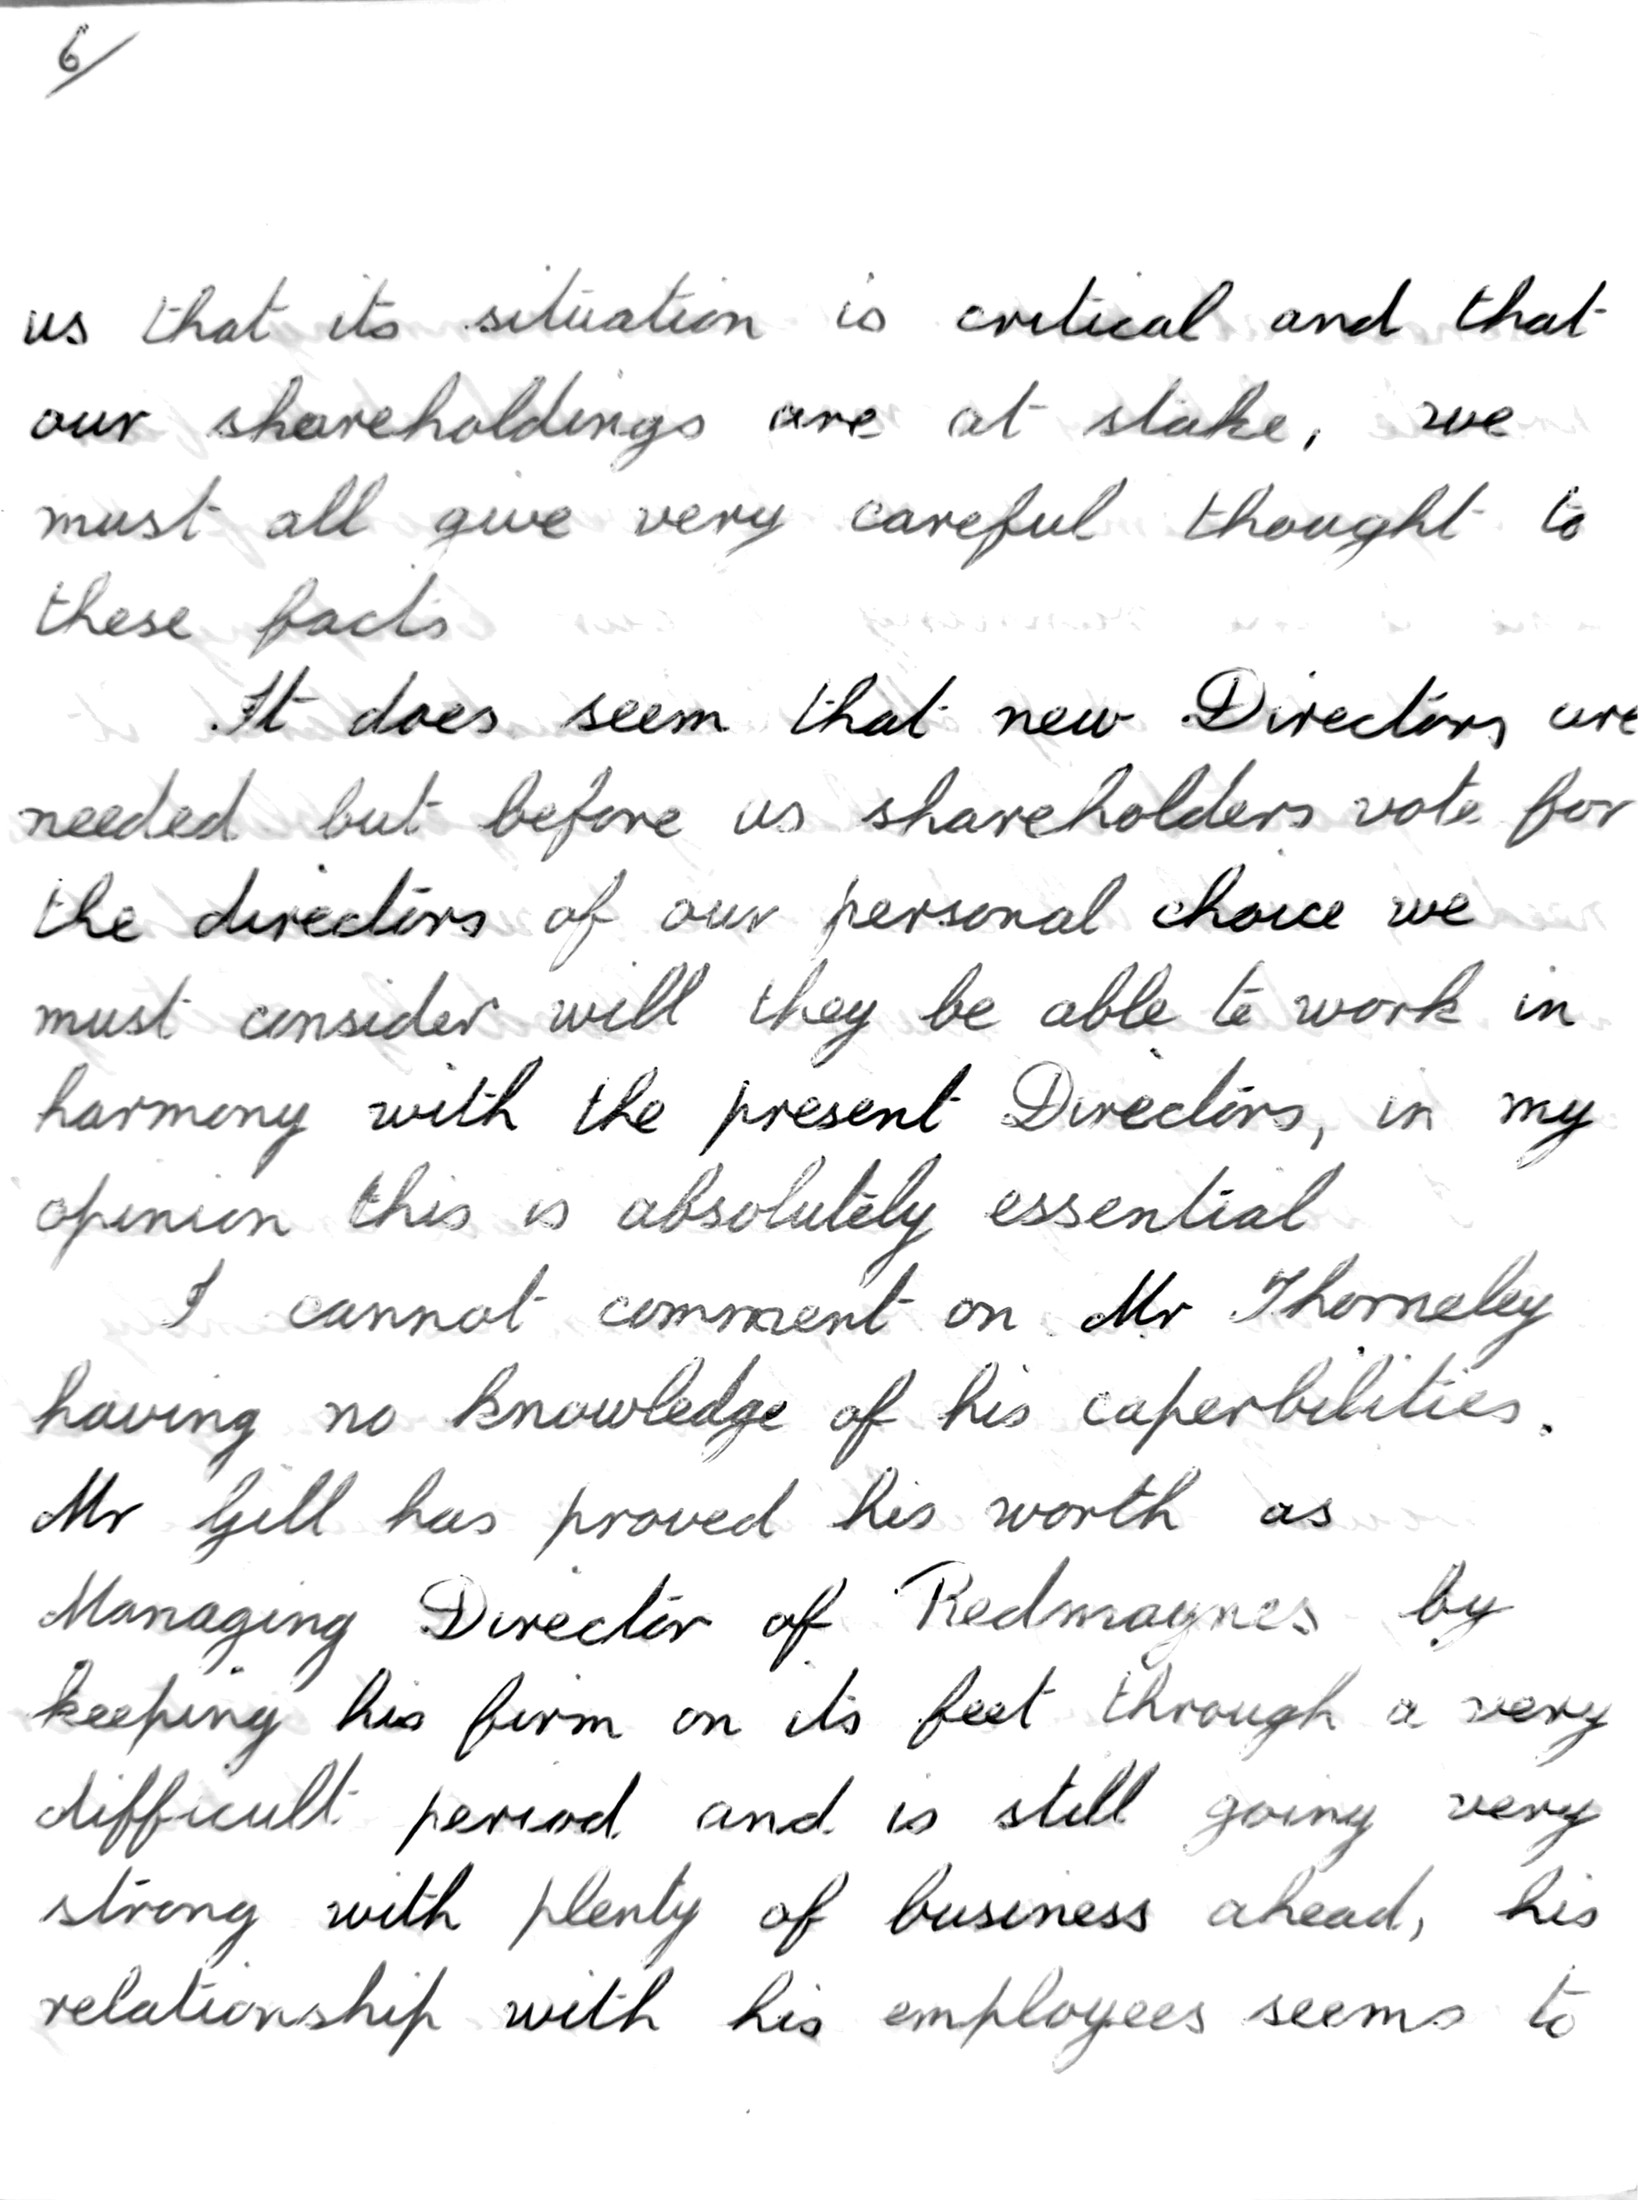 6/
us that its situation is critical and that
our shareholdings are at stake, we
must all give very careful thought to
these facts
It does seem that new Directors are
needed but before us shareholders vote for
the directors of our personal choice we
must consider will they be able to work in
harmony with the present Directors, in my
opinion this is absolutely essential
I cannot comment on Mr Thorneley
having no knowledge of his caperbilities.
Mr Gill has proved his worth as
Managing Director of Redmaynes by
keeping his firm on its feet through a very
difficult period and is still going very
strong with plenty of business ahead, his
relationship with his employees seems to